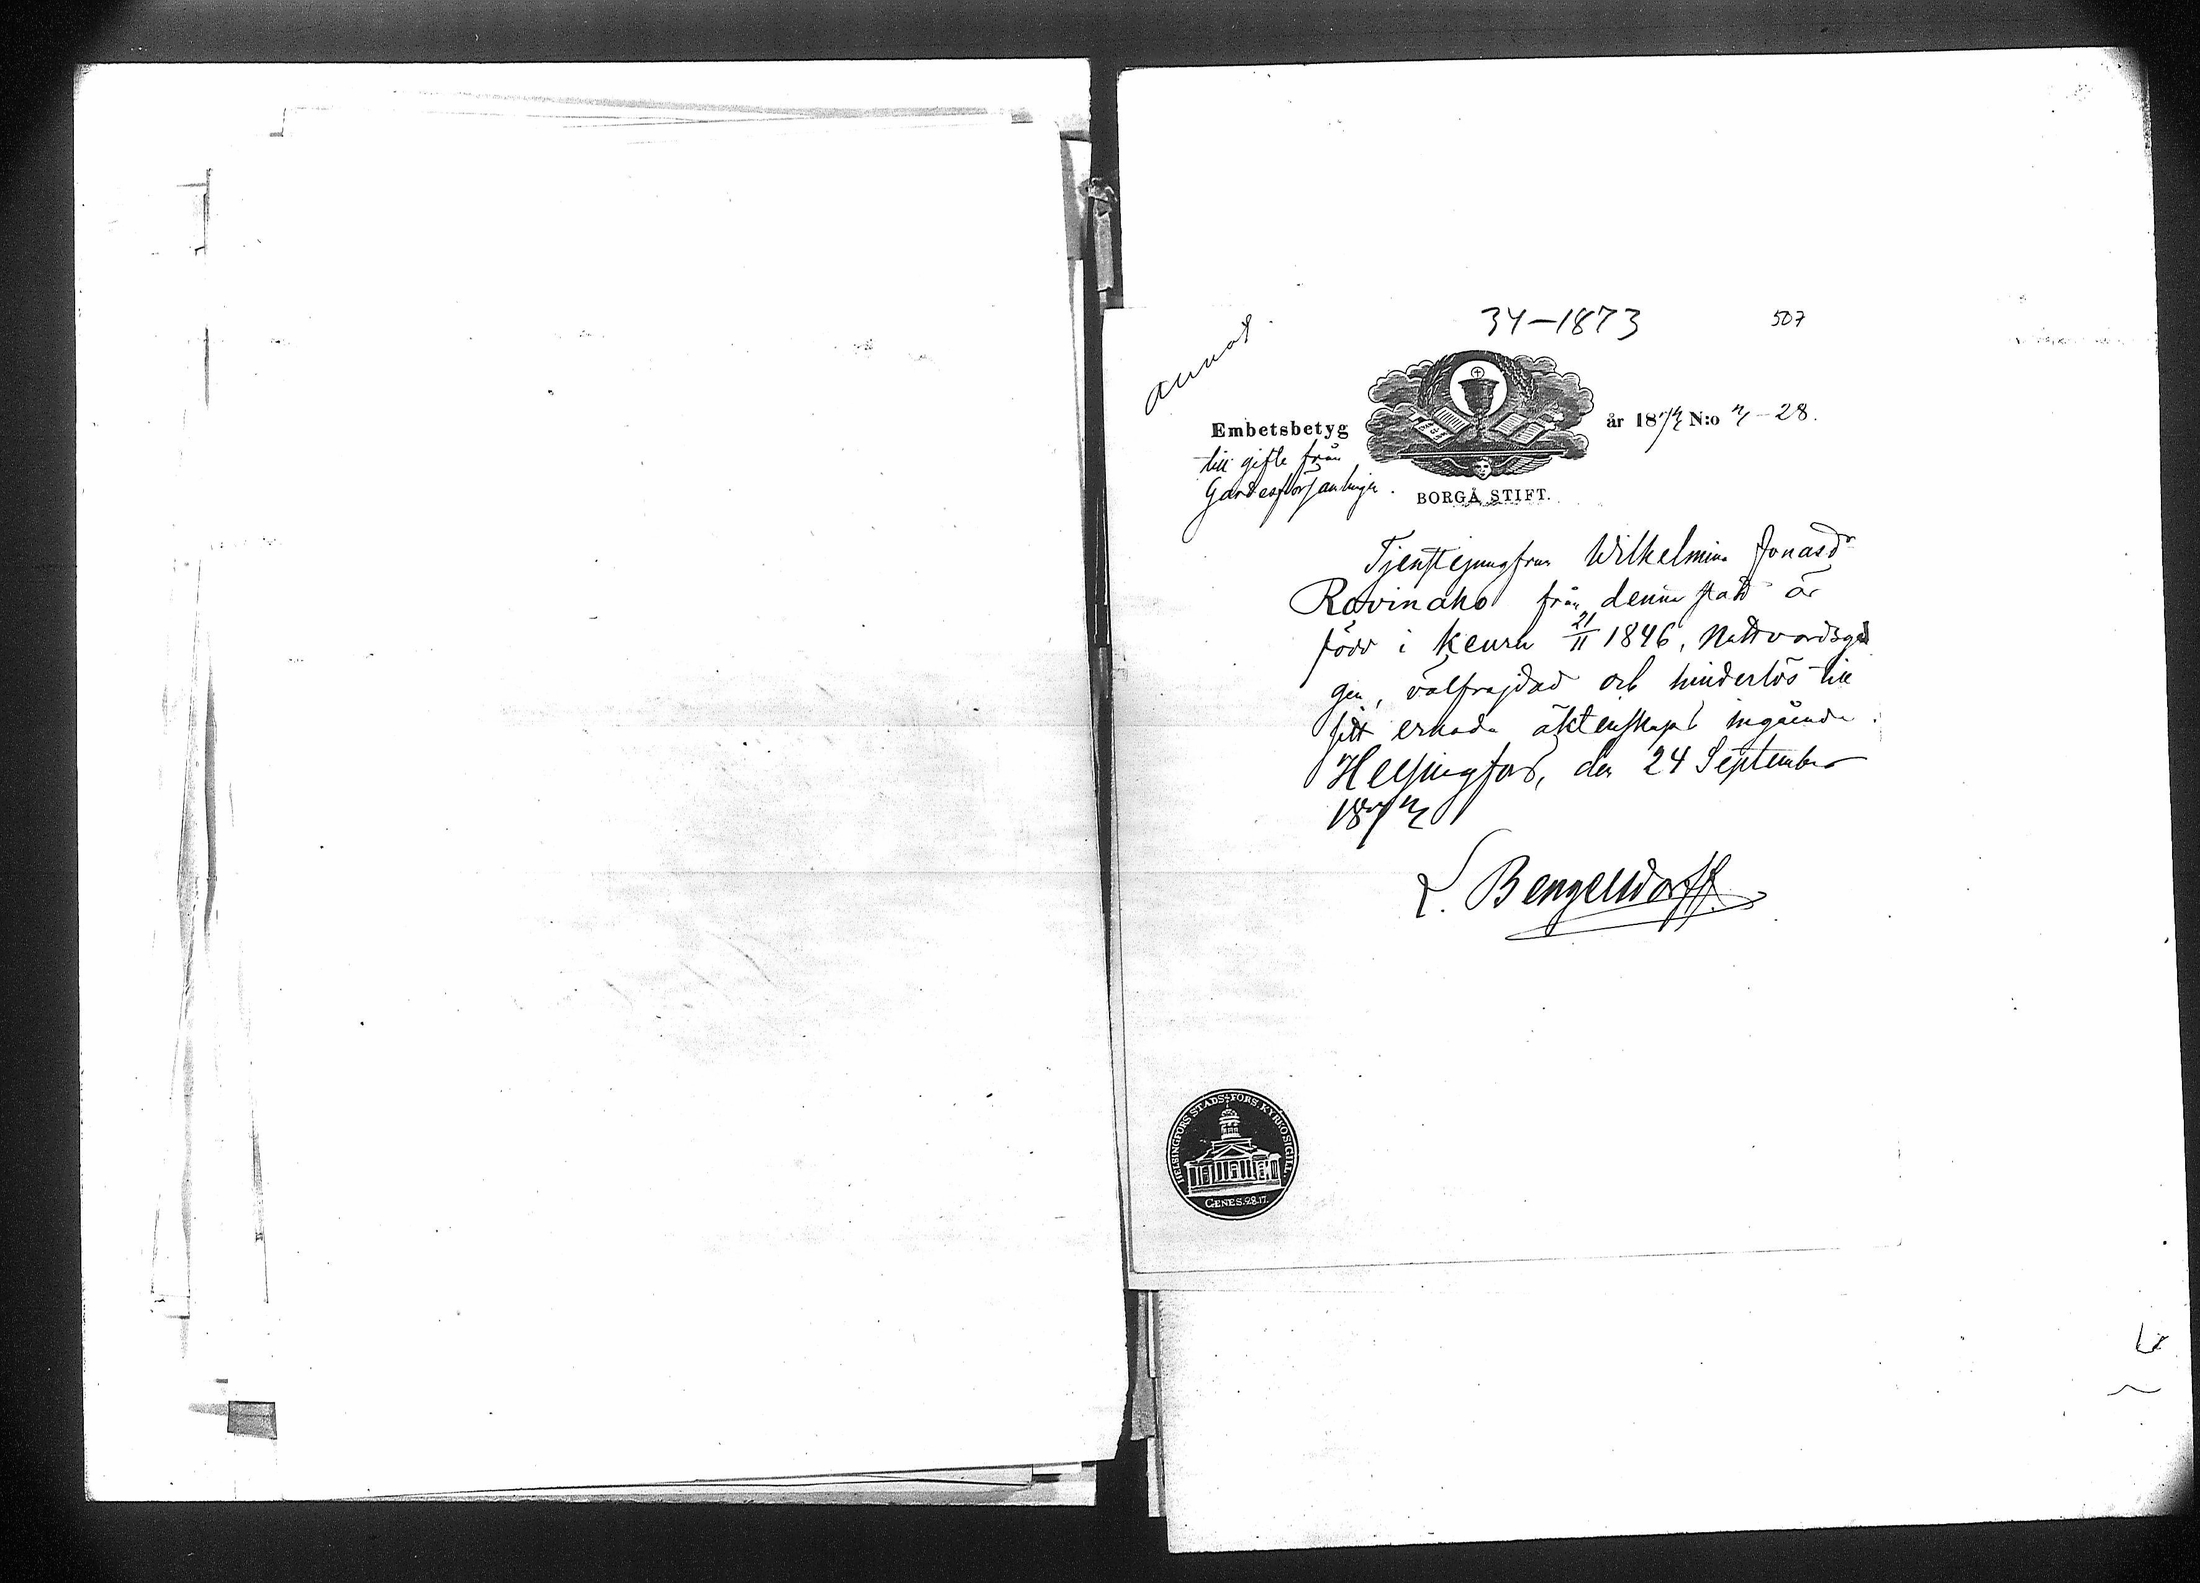 34-1873
507
Embetsbetyg
år 1872 N:o 2-28.
till gifte från
Gardesförsamlingen.
BORGÅ STIFT.
Tjenstejungfrun Wilhelmina Jonasdr
Rovinaho från denna stad är
född i Keuru 21/11 1846, Nattvardsgån
gen, välfrejdad och hinderlös till
sitt ernade äktenskaps ingående.
Helsingfors, den 24 September
1872
L. Bengelsdorff.
HELSINGFORS STADS FÖRS. KYRKOSIGILL.
GENES. 28.17.